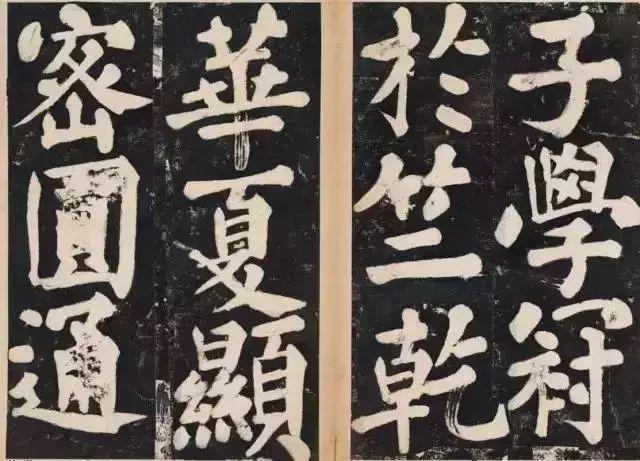 子學
於竺乾
華夏顯
密圓通